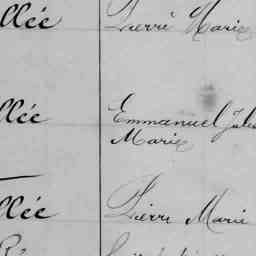 llée Pierre Marie
llée Emmanuel Jules
Marie
llée Pierre Marie